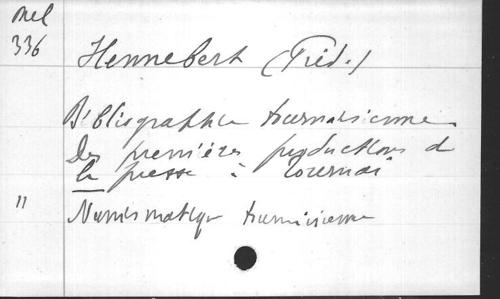 Mel
336
Hennebert (Fréd.)
Bibliographie tournaisienne.
Des premières productions de
la presse à Tournai
" Numismatique tournaisienne